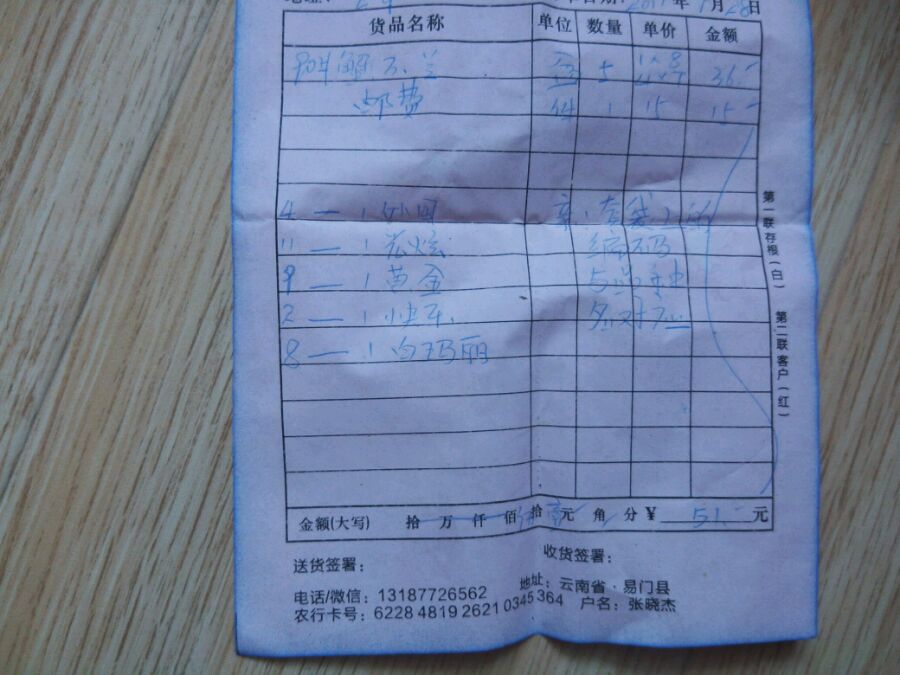 年 月28日
货品名称 单位 数量 单价 金额
蟹爪兰 盆 5 36.-
邮费 件 1 15 15-
4 — 1
11 — 1 编码
9 — 1 黄金 与品种
2 — 1 快乐 名对应
8 — 1 白玛丽
金额(大写) 拾 万 仟 佰 拾 元 角 分 ¥ 51.- 元
送货签署： 收货签署：
电话/微信：13187726562 地址：云南省·易门县
农行卡号：6228 4819 2621 0345 364 户名：张晓杰
第一联存根(白) 第二联客户(红)